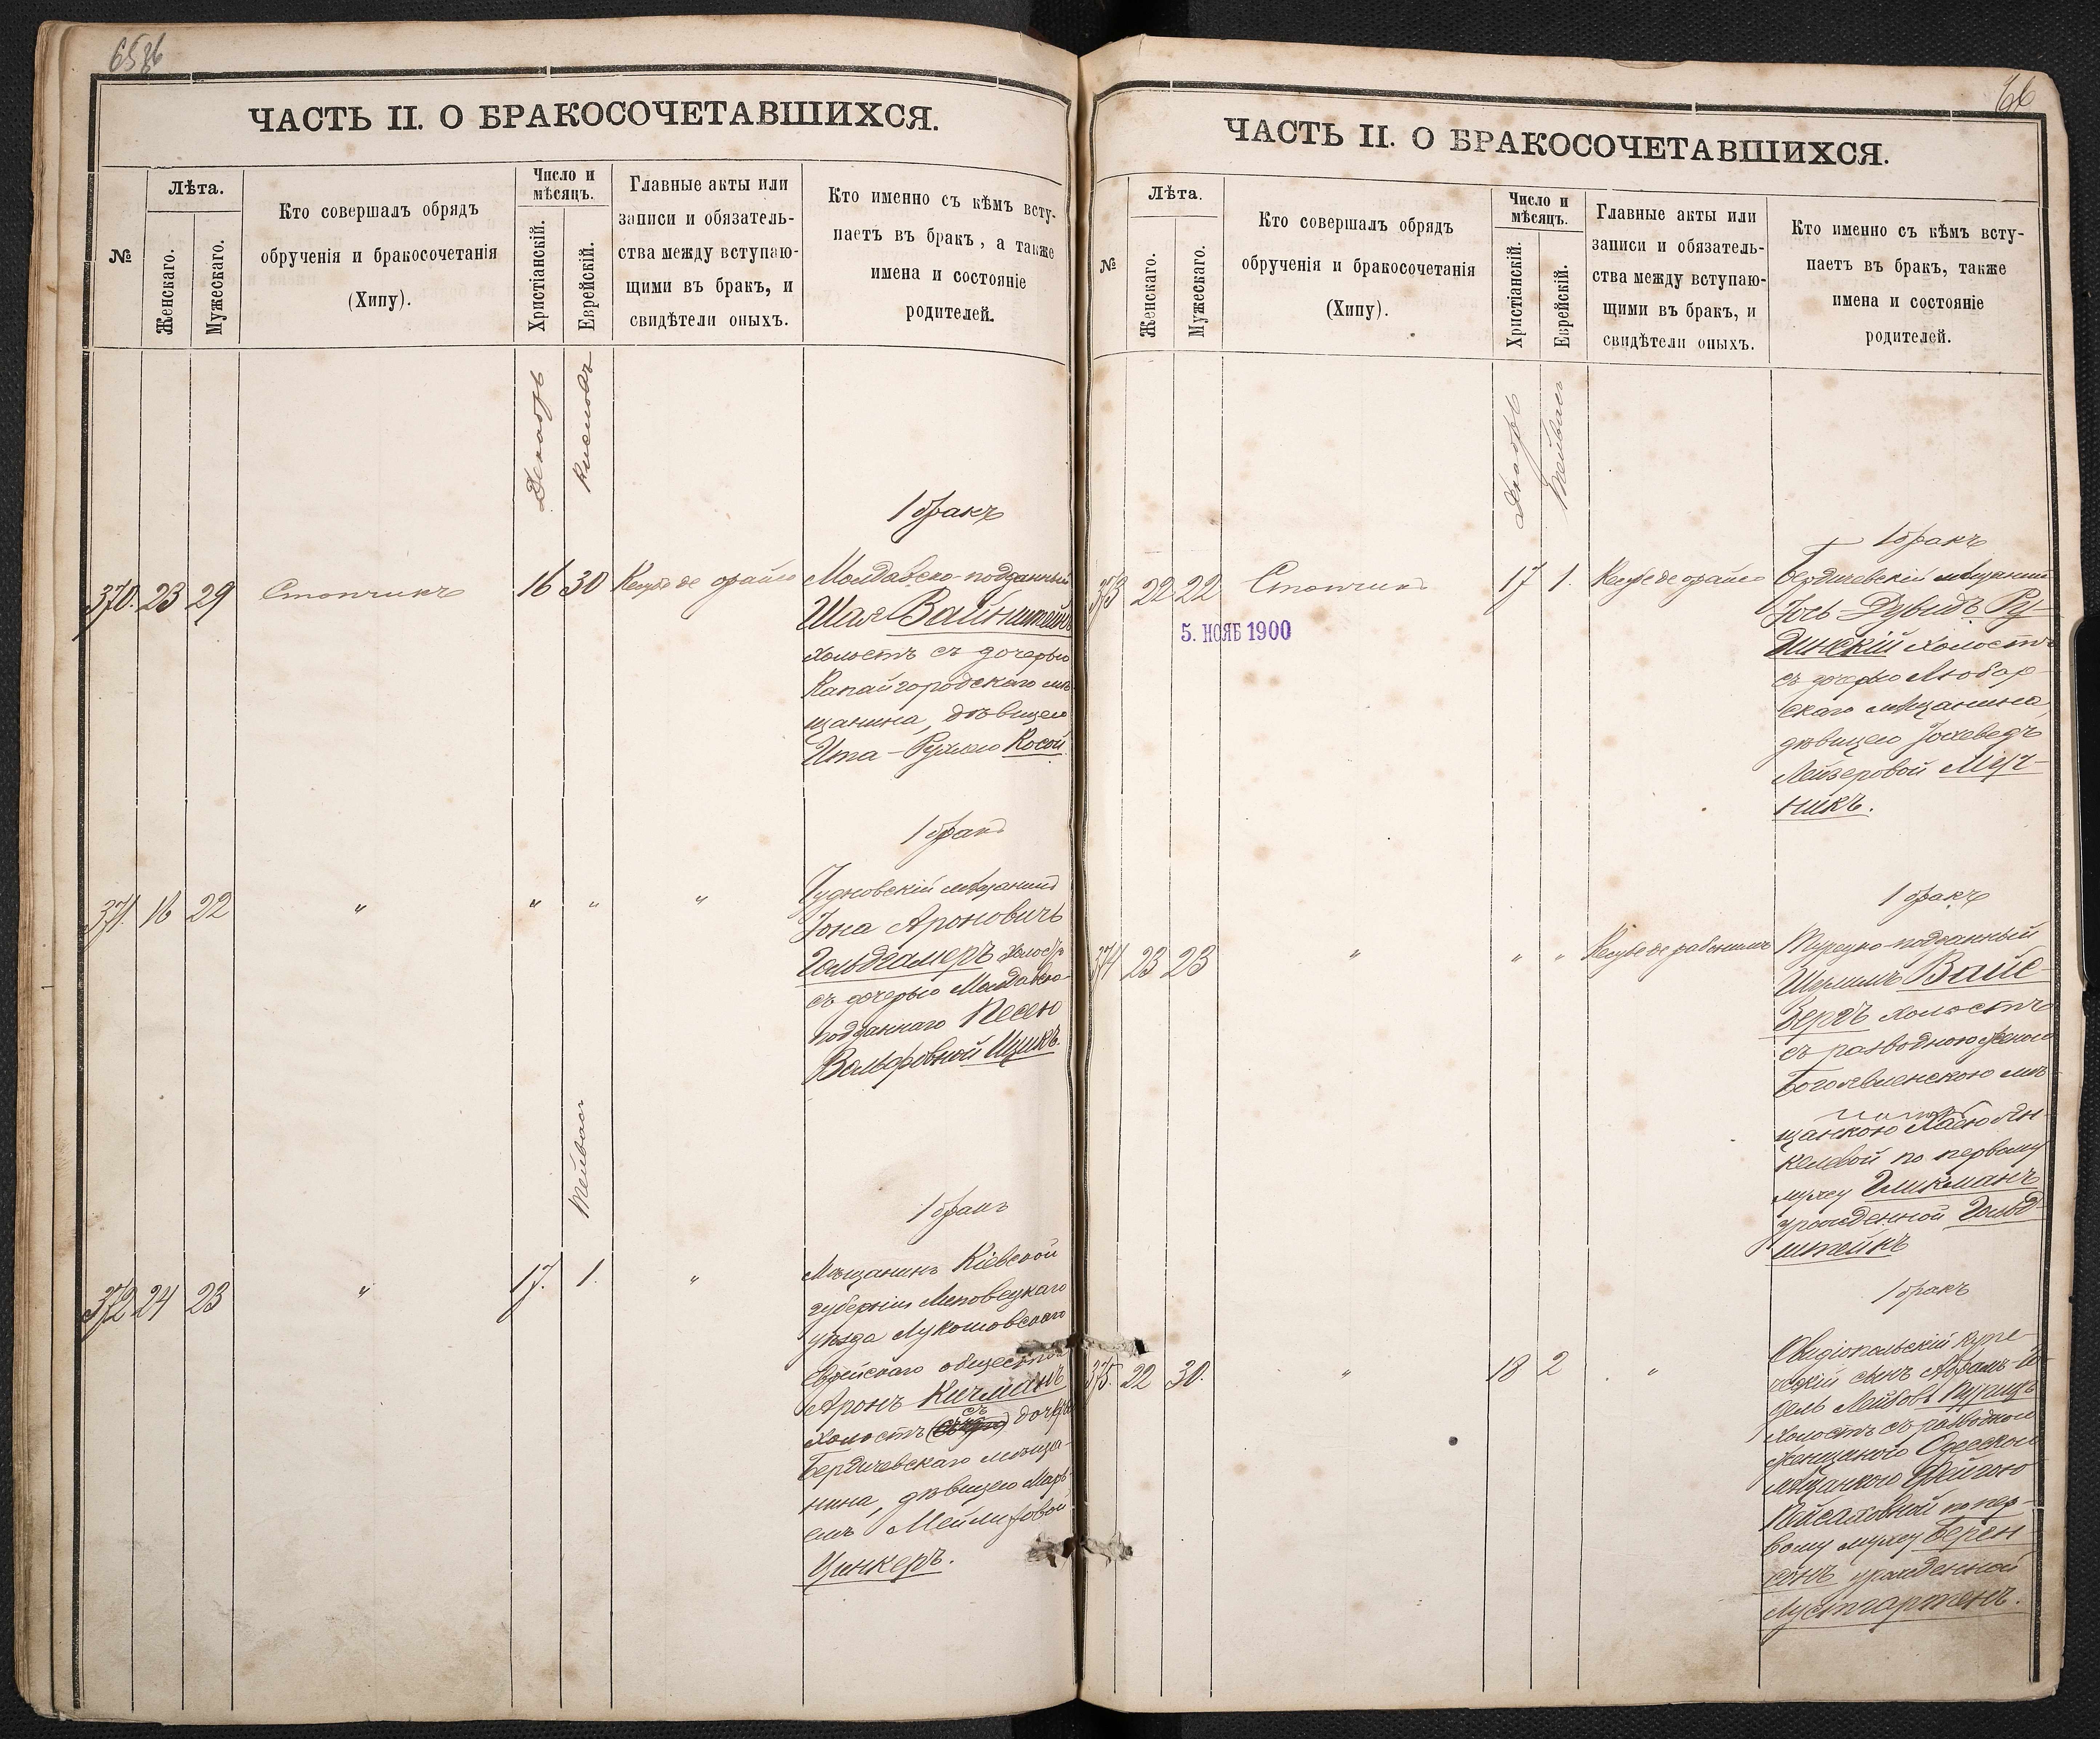 ЧАСТЬ II. О БРАКОСОЧЕТАВШИХСЯ.
№
Лѣта.
Женскаго.
Мужескаго.
Кто совершалъ обрядъ
обрученія и бракосочетанія
(Хипу).
Число и
мѣсяцъ.
Христіанскій.
Еврейскій.
Главные акты или
записи и обязатель-
ства между вступаю-
щими въ бракъ, и
свидѣтели оныхъ.
Кто именно съ кѣмъ всту-
паетъ въ бракъ, а также
имена и состояніе
родителей.
Декабрь
Кислевъ
1 бракъ
370. 23 29 Стопчикъ 16 30 Кесубе де орайсо
Молдавско-подданный
Шая Вайнштейнъ
холостъ съ дочерью
Капайгородскаго мѣ-
щанина, дѣвицею
Ита-Рухлею Косой.
1 бракъ
371. 16 22 " " " "
Чудновскій мѣщанинъ
Іона Ароновичъ
Гольдгамеръ холостъ
съ дочерью Молдавско-
подданнаго Песею
Вольфовной Щикъ.
Тейвасъ
1 бракъ
372 24 23 " 17. 1. "
Мѣщанинъ Кіевской
губерніи Липовецкаго
уѣзда Лукашовскаго
еврейскаго общества
Аронъ Кичманъ
холостъ съ дочерью
Бердичевскаго мѣща-
нина, дѣвицею Марь-
емъ
Цинкеръ.
66
ЧАСТЬ II. О БРАКОСОЧЕТАВШИХСЯ.
№
Лѣта.
Женскаго.
Мужескаго.
Кто совершалъ обрядъ
обрученія и бракосочетанія
(Хипу).
Число и
мѣсяцъ.
Христіанскій.
Еврейскій.
Главные акты или
записи и обязатель-
ства между вступаю-
щими въ бракъ, и
свидѣтели оныхъ.
Кто именно съ кѣмъ всту-
паетъ въ бракъ, также
имена и состояніе
родителей.
Декабрь
Тейвасъ
1 бракъ
373 22 22 Стопчикъ 17 1. Кесубе де орайсо
5. НОЯБ 1900
Бердичевскій мѣщанинъ
Іось-Дувидъ Ру-
динскій холостъ
съ дочерью Любар-
скаго мѣщанина,
дѣвицею Іохеведъ
Лейзеровой Муч-
никъ.
1 бракъ
374 23 23 " " " Кесубе де рабонимъ
Турецко-подданный
Шулимъ Вайс-
бергъ холостъ
съ разводною женою
мѣ-
щанкою Хаею Ян-
келевой по первому
мужу Гликманъ
урожденной Гольд-
штейнъ
1 бракъ
375. 22 30. " 18 2 "
Овидіопольскій купе-
ческій сынъ Абрамъ-Ю-
дель Лейбовъ
холостъ съ разводною
женщиною Одесскою
мѣщанкою Фейгою
Пейсаховной по пер-
вому мужу Берен-
сонъ урожденной
Лустгартенъ.